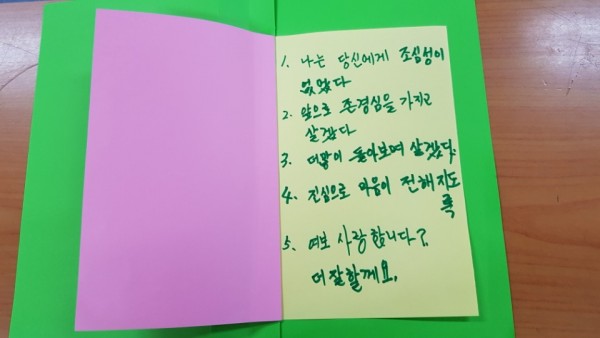 1. 나는 당신에게 조심성이
없었다
2. 앞으로 존경심을 가지고
살겠다
3. 더많이 돌아보며 살겠다.
4. 진심으로 마음이 전해지도
록
5. 여보 사랑합니다?
더잘할께요.